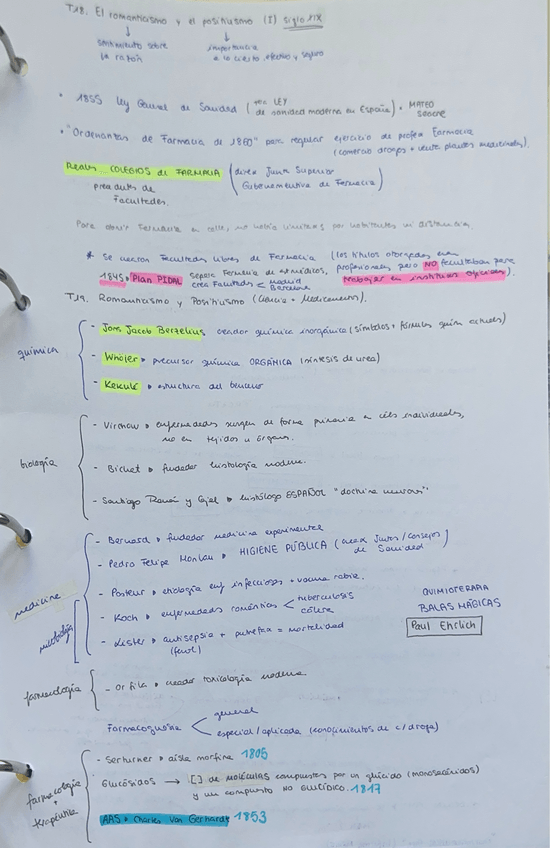 T18. El romanticismo y el positivismo (I) siglo XIX
sentimiento sobre la razón
importancia a lo cierto, efectivo y seguro
• 1855 ley General de Sanidad (1era LEY de sanidad moderna en España) • MATEO SEOANE
• "Ordenanzas de Farmacia de 1860" para regular ejercicio de profes Farmacia
(comercio drogas + venta plantas medicinales).
Reales COLEGIOS de FARMACIA (Junta Superior Gubernamentiva de Farmacia)
de Facultades.
Para abrir Farmacia en calle, no había límites por habitantes ni distancia.
* Se crearon Facultades libres de Farmacia (los títulos otorgados eran
profesionales pero NO facultaban para
trabajar en institutos oficiales).
1845 Plan PIDAL separa Farmacia de médicos,
crea Facultades < Madrid
Barcelona
T19. Romanticismo y Positivismo (Ciencia + Medicamento).
química
- Jons Jacob Berzelius creador química inorgánica (símbolos + fórmulas quím actuales)
- Whöler precursor química ORGÁNICA (síntesis de urea)
- Kekulé estructura del benceno
biología
- Virchow enfermedades surgen de forma primaria en céls individuales,
no en tejidos u órganos.
- Bichat fundador histología moderna.
- Santiago Ramón y Cajal histólogo ESPAÑOL "doctrina neurona"
medicina
- Bernard fundador medicina experimental
- Pedro Felipe Monlau HIGIENE PÚBLICA (crear Juntas/Consejos de Sanidad)
microbiología
- Pasteur etiología enf infecciosas + vacuna rabia.
- Koch enfermedades < tuberculosis
cólera
- Lister antisepsia + = mortalidad
(fenol)
QUIMIOTERAPIA
BALAS MÁGICAS
Paul Ehrlich
farmacología
- Orfila creador toxicología moderna
Farmacognosia < general
especial/aplicada (conocimientos de c/droga)
farmacología + terapéutica
- Serturner aísla morfina 1805
Glucósidos → [] de MOLÉCULAS compuestas por un glúcido (monosacáridos)
y un compuesto NO GLUCÍDICO. 1817
AAS Charles Von Gerhardt 1853